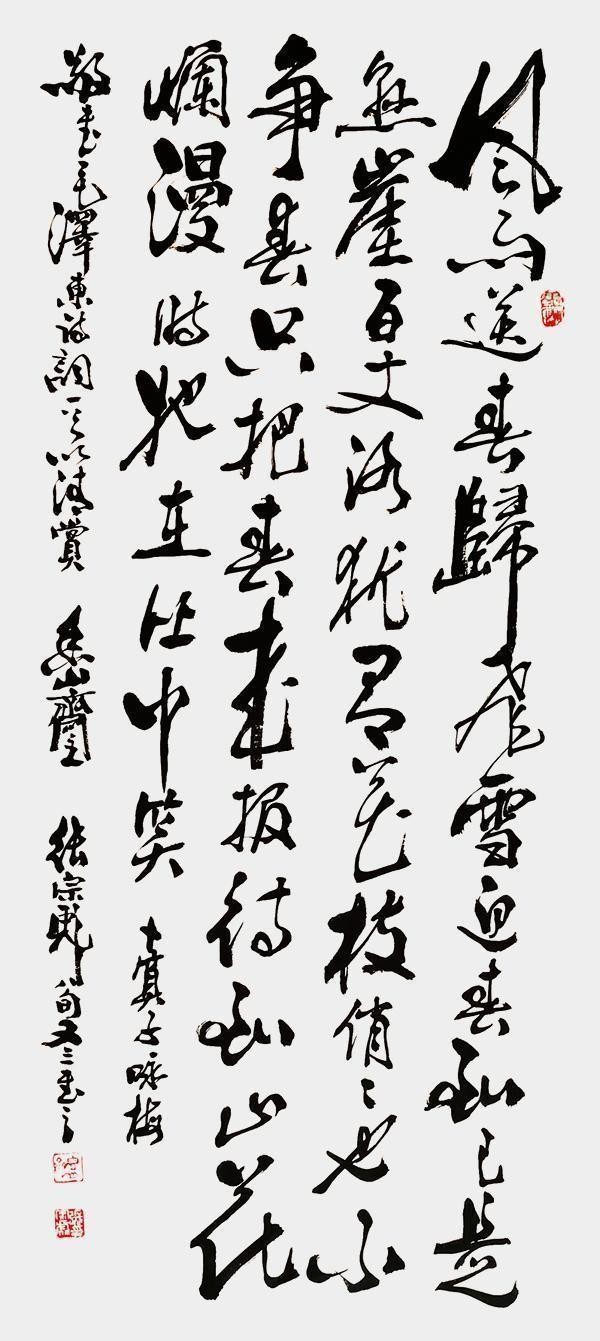 风雨送春歸飛雪迎春到已是
懸崖百丈冰犹有花枝俏俏也不
争春只把春来报待到山花
爛漫时她在丛中笑 卜算子咏梅
敬書毛澤東詩詞一首以清賞 泰山齋主 張宗彪 旬又三書之